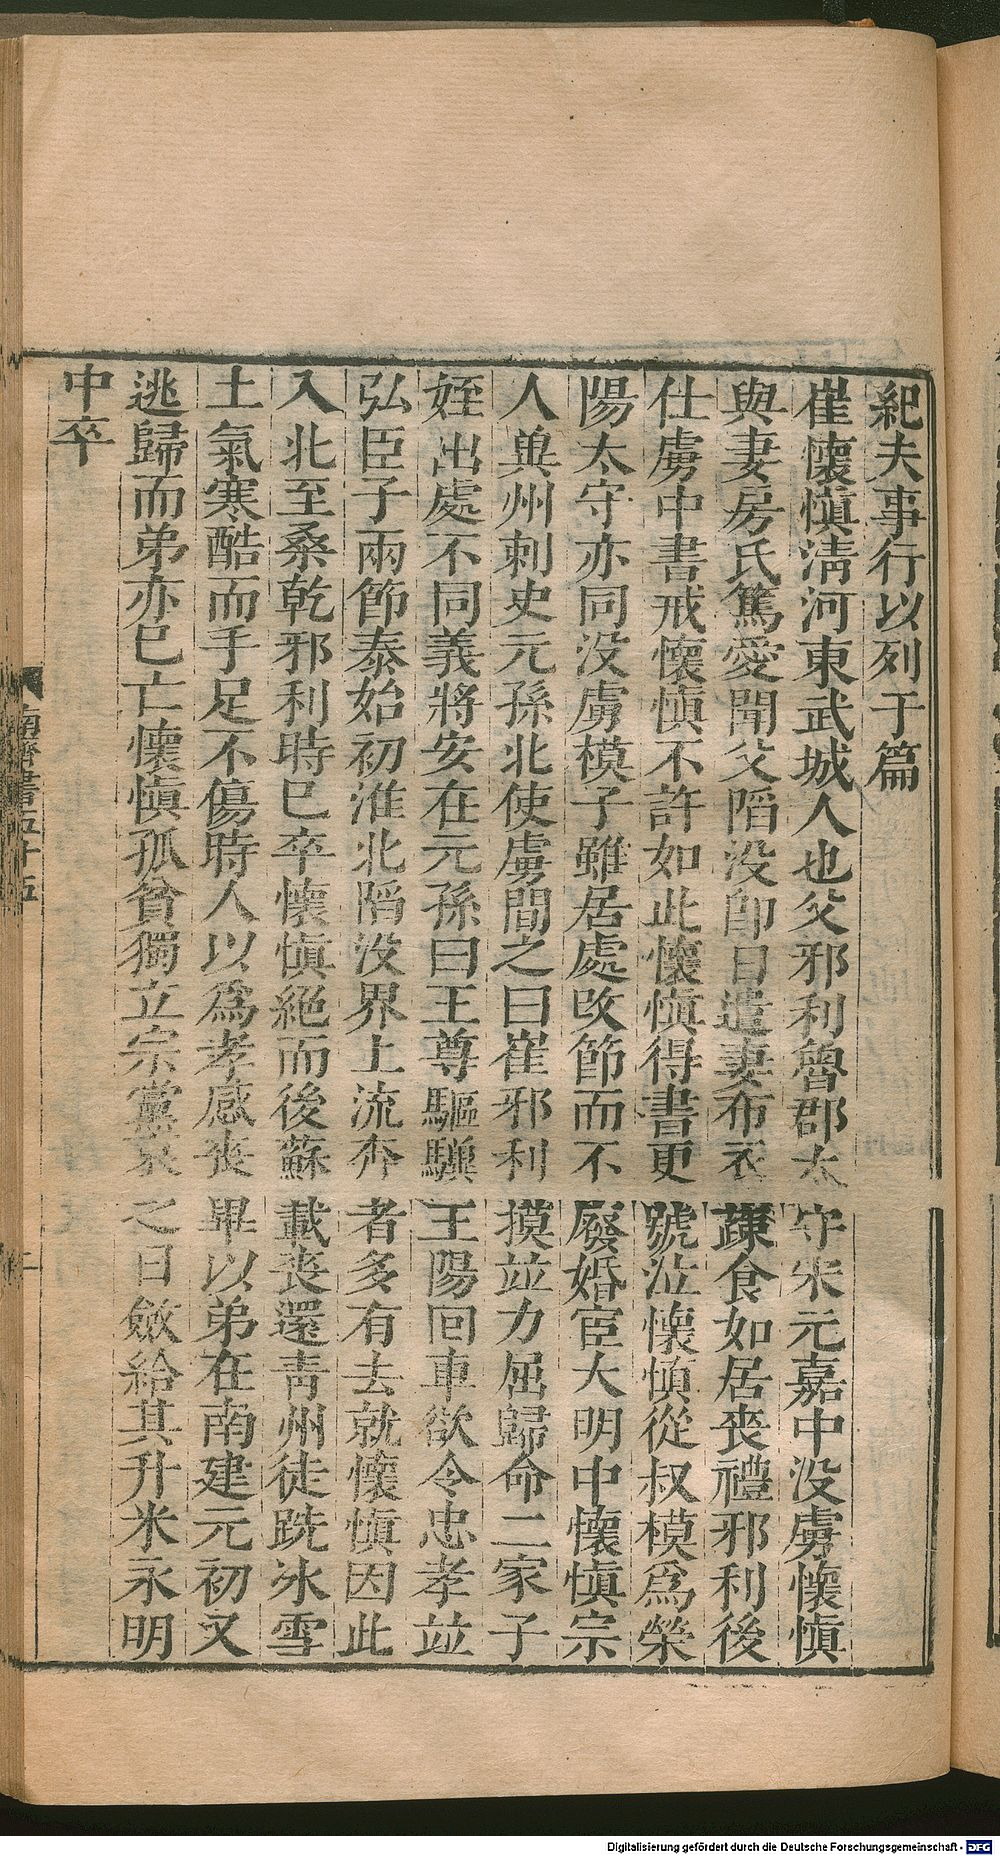 紀夫事行以列于篇
崔懷慎淸河東武城人也父邪利魯郡太守宋元嘉中没虜懷慎
與妻房氏篤愛聞父䧟没卽日遣妻布衣蔬食如居喪禮邪利後
仕虜中書戒懷慎不許如此懷慎得書更號泣懷慎從叔模爲滎
陽太守亦同没虜模子雖居處改節而不廢婚宦大明中懷慎宗
人兾州刺史元孫北使虜間之曰崔邪利摸並力屈歸命二家子
姪出處不同義將安在元孫曰王尊驅驥王陽回車欲令忠孝並
弘臣子兩節泰始初淮北䧟没界上流奔者多有去就懷慎因此
入北至桑乾邪利時已卒懷慎絕而後蘇載喪還靑州徒跣冰雪
土氣寒酷而手足不傷時人以爲孝感喪畢以弟在南建元初又
逃歸而弟亦已亡懷慎孤貧獨立宗黨哀之日斂給其升米永明
中卒
南齊書五十五
二
Digitalisierung gefördert durch die Deutsche Forschungsgemeinschaft - DFG